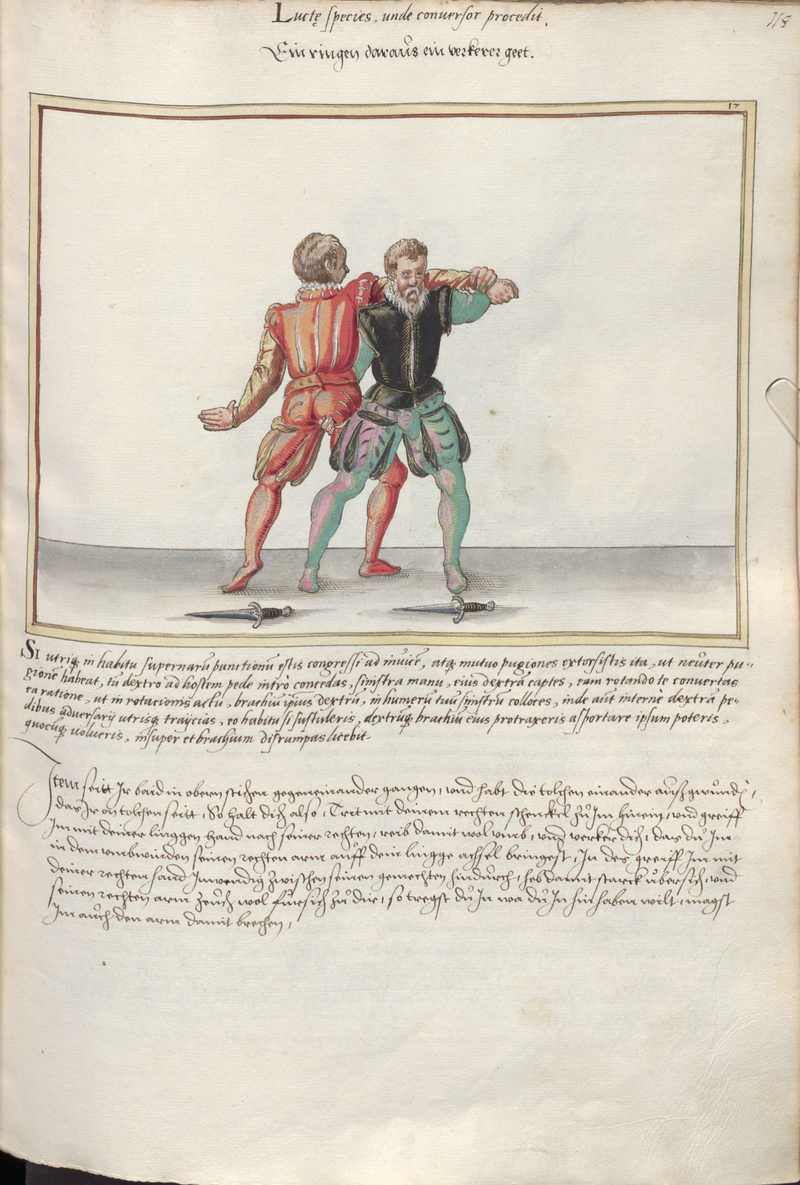 Luctę species, unde conuersor procedit.
118
Ein ringen daraus ein verkerer geet.
17
SI utriq; in habitu supernarũ punctionũ estis congressi ad inuicẽ, atq; mutuo pugiones extorsistis ita, ut neuter pu-
gionẽ habeat, tũ dextro ad hostem pede intrò concedas, sinistra manu, eius dextrã captes, eam rotando te conuertas
ea ratione, ut in rotationis actu, brachiũ ipsius dextrũ, in humerũ tuũ sinistrũ colloces, inde aũt internè dextrã pe-
dibus aduersarij utrisq; traijcias, eo habitu si sustuleris, dextrũq; brachiũ eius protraxeris asportare ipsum poteris,
quocũq; uolueris, insuper et brachium disrumpas licebit.
Item seitt Ir baid in obern stichen gegeneinander gangen, und habt die tolchen einander auß gwunden,
das Ir on tolchen seitt, So halt dich also, Trit mit deinem rechten schenckel zů Im hinein, und greiff
Im mit deiner linggen hand nach seiner rechten, reib damit wol umb, und verker dich, das dů Im
in dem umbwinden seinen rechten arm auff dein lingge achsel bringest, In des greiff Im mit
deiner rechten hand Inwendig zwischen seinen gemechten hindurch, heb damit starck ubersich, und
seinen rechten arm zeuch wol fursich zů dir, so tregst dů In wa dů In hin haben wilt, magst
Im auch den arm damit brechen,